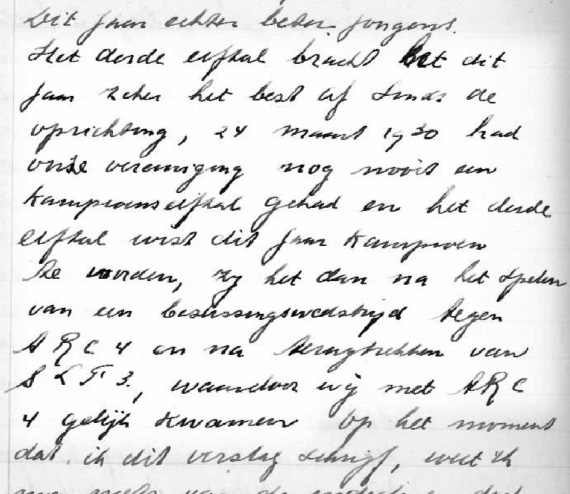 Dit jaar echter beter jongens.
Het derde elftal bracht het dit
jaar zeker het best af. Sinds de
oprichting, 24 maart 1930 had
onze vereniging nog nooit een
kampioenselftal gehad en het derde
elftal wist dit jaar kampioen
te worden, zij het dan na het spelen
van een beslissingswedstrijd tegen
ARC 4 en na terugtrekken van
SLF 3, waardoor wij met ARC
4 gelijk kwamen op het moment
dat ik dit verslag schrijf, weet ik